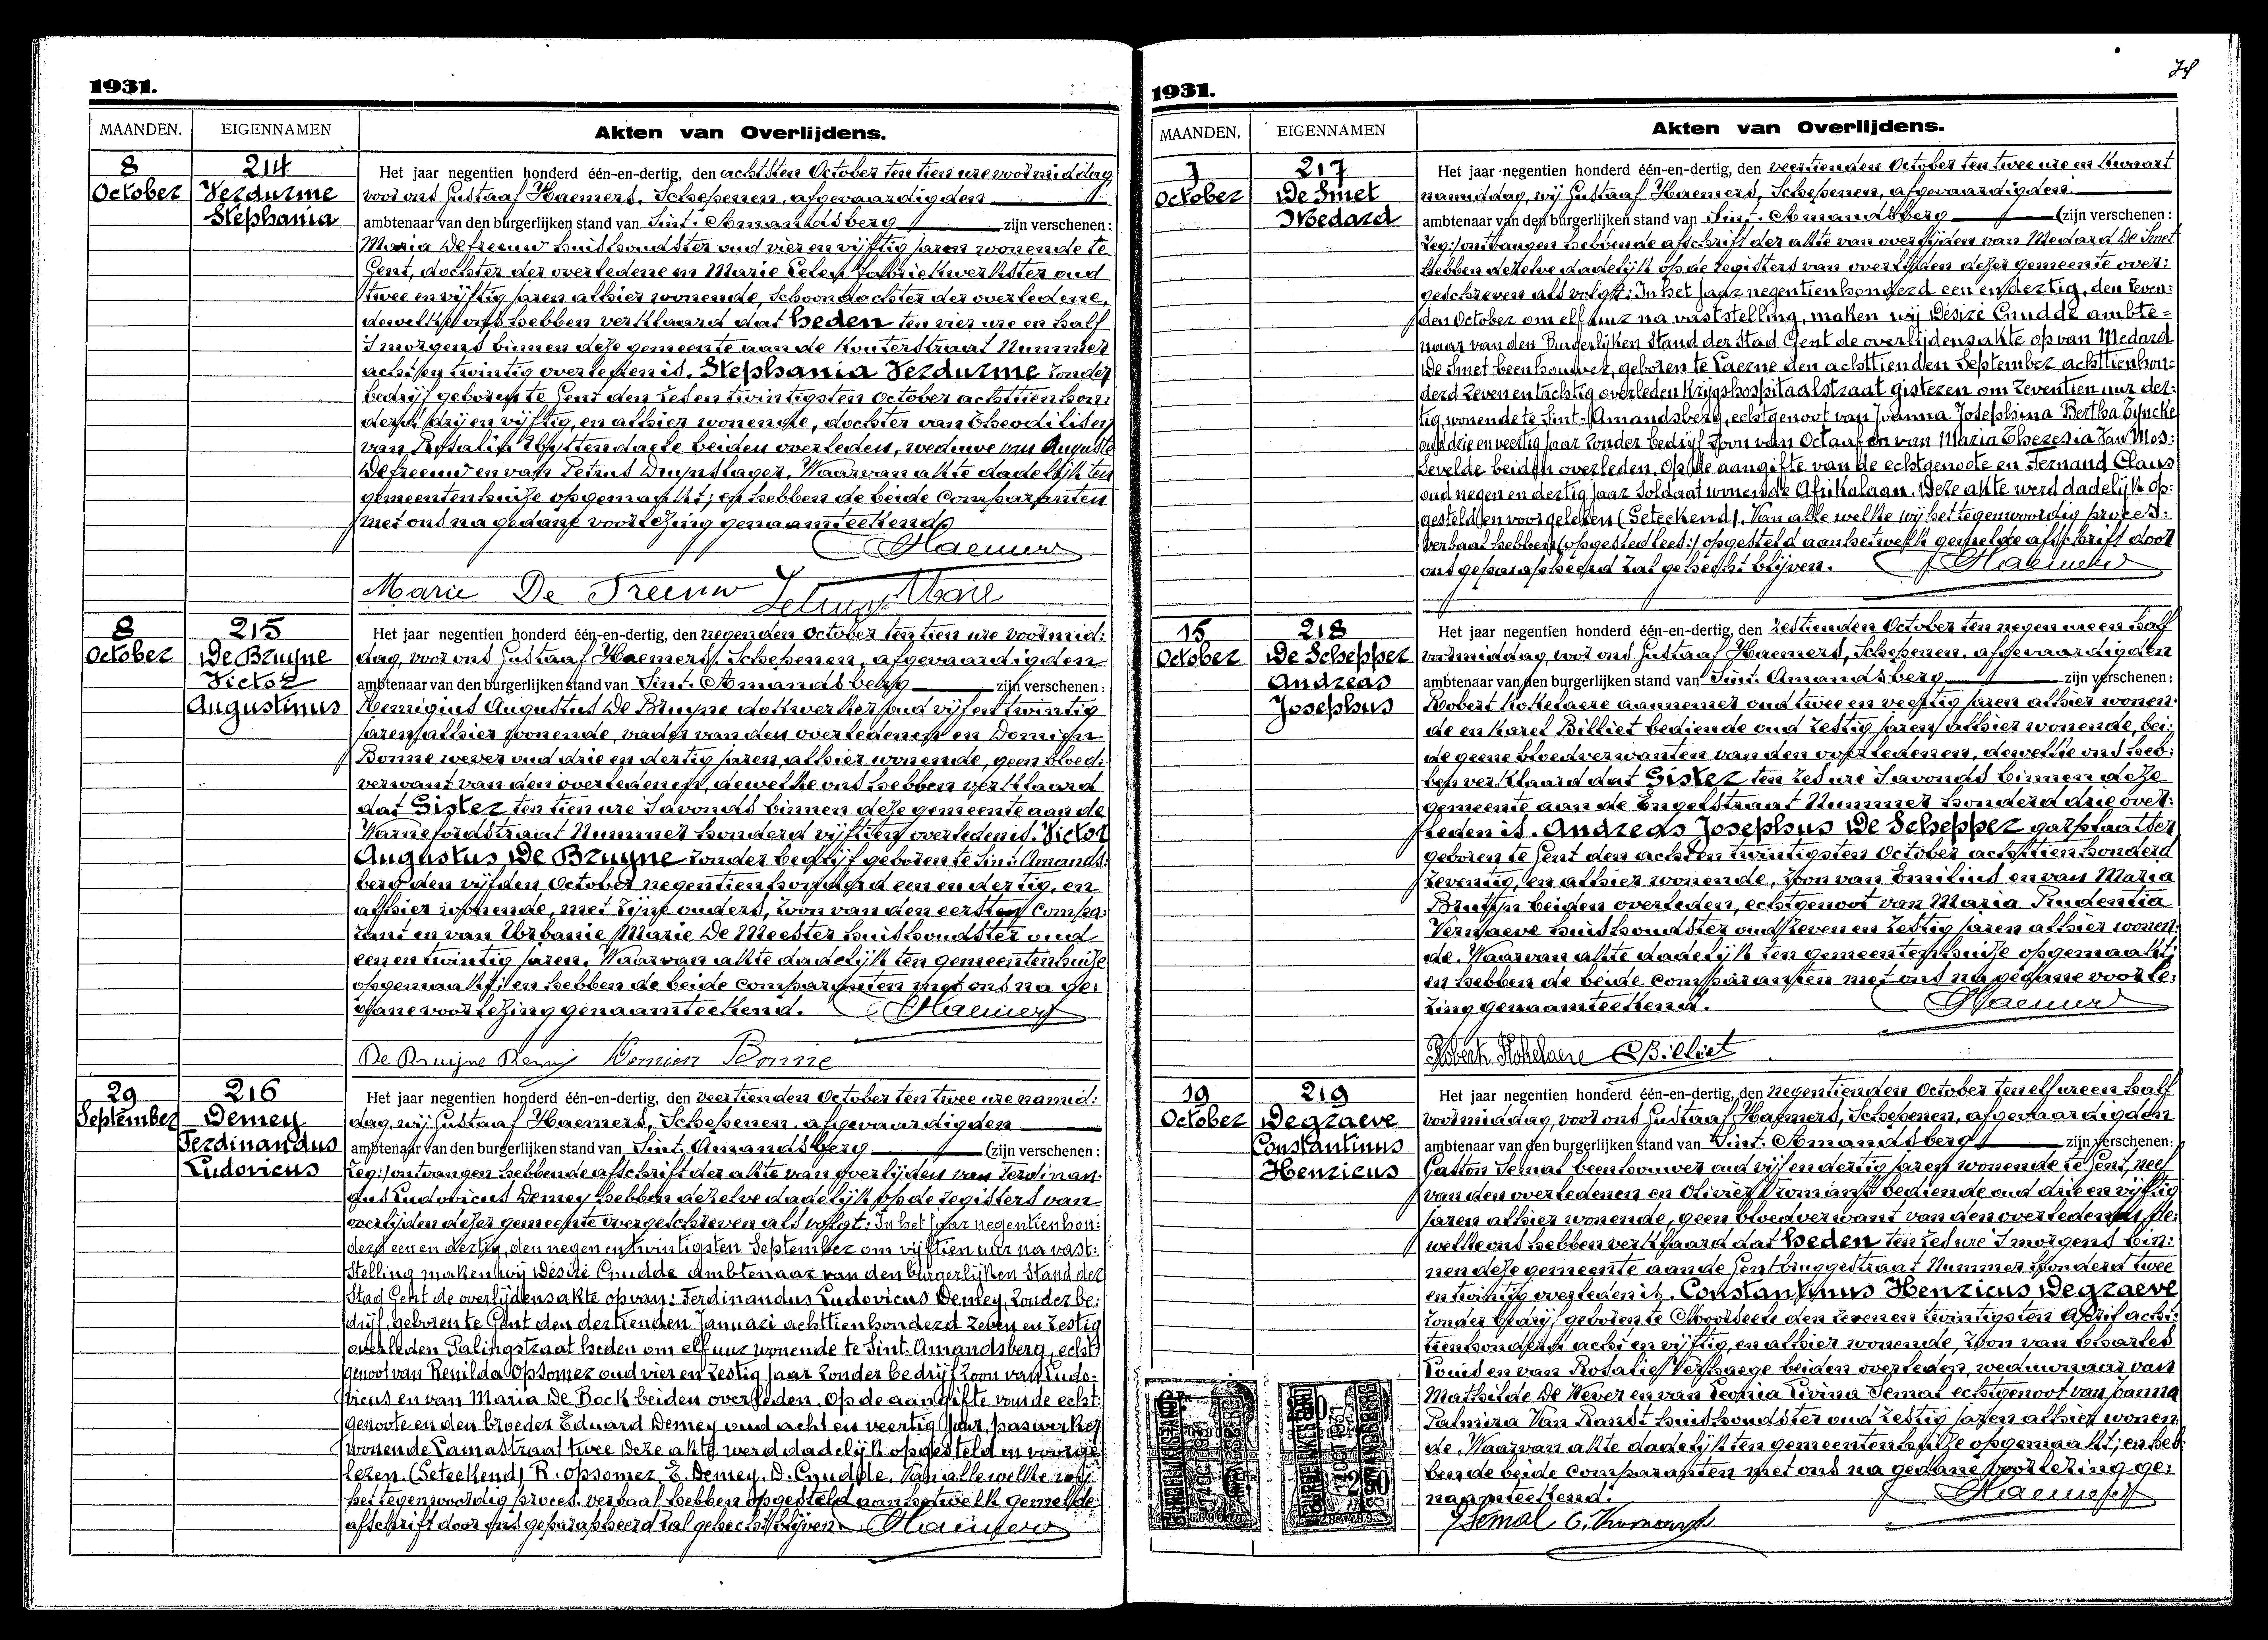 1931.
MAANDEN.
EIGENNAMEN
Akten van Overlijdens.
8
October
214
Verdurme
Stephania
Het jaar negentien honderd één-en-dertig, den achtsten October ten tien ure voormiddag
voor ons Gustaaf Haemers, Schepenen, afgevaardigden
ambtenaar van den burgerlijken stand van Sint-Amandsberg zijn verschenen:
Maria Defreeuw huishoudster oud vier en vijftig jaren wonende te
Gent, dochter der overledene en Marie fabriekwerkster oud
twee en vijftig jaren alhier wonende, schoondochter der overledene,
dewelke ons hebben verklaard dat heden ten vier ure en half
's morgens binnen deze gemeente aan de Kouterstraat Nummer
acht en twintig overleden is, Stephania Verdurme zonder
bedrijf geboren te Gent den zes en twintigsten October achttienhon:
derd drij en vijftig, en alhier wonende, dochter van en
van Rosalie Uyttendaele beiden overleden, weduwe van Auguste
Defreeuw en van Petrus Waarvan akte dadelijk ten
gemeentenhuize opgemaakt; en hebben de beide comparanten
met ons na gedane voorlezing genaamteekend.
Haemers
Marie De Freeuw Marie
8
October
215
De Bruyne
Victor
Augustinus
Het jaar negentien honderd één-en-dertig, den negenden October ten tien ure voormid:
dag, voor ons Gustaaf Haemers, Schepenen, afgevaardigden
ambtenaar van den burgerlijken stand van Sint-Amandsberg zijn verschenen:
Remigius Augustus De Bruyne dokwerker oud vijf en twintig
jaren alhier wonende, vader van den overledenen en Domien
Bonne wever oud drie en dertig jaren, alhier wonende, geen bloed:
verwant van den overledenen, dewelke ons hebben verklaard
dat Gister ten tien ure 's avonds binnen deze gemeente aan de
Warnefordstraat Nummer honderd vijftien overleden is, Victor
Augustus De Bruyne zonder bedrijf geboren te Sint-Amands:
berg den vijfden October negentienhonderd een en dertig, en
alhier wonende, met zijne ouders, zoon van den eersten compa:
rant en van Urbanie Marie De Meester huishoudster oud
een en twintig jaren. Waarvan akte dadelijk ten gemeentenhuize
opgemaakt; en hebben de beide comparanten met ons na ge:
dane voorlezing genaamteekend. Haemers
De Bruyne Remi Domien Bonne
29
September
216
Demey
Ferdinandus
Ludovicus
Het jaar negentien honderd één-en-dertig, den veertienden October ten twee ure namid:
dag, wij Gustaaf Haemers, Schepenen, afgevaardigden
ambtenaar van den burgerlijken stand van Sint-Amandsberg (zijn verschenen:
leg:) ontvangen hebbende afschrift der akte van overlijden van Ferdinan:
dus Ludovicus Demey hebben dezelve dadelijk op de registers van
overlijden dezer gemeente overgeschreven als volgt: In het jaar negentienhon:
derd een en dertig, den negen en twintigsten September om vijftien uur na vast:
stelling maken wij Désiré Cnudde Ambtenaar van den burgerlijken stand der
Stad Gent de overlijdensakte op van: Ferdinandus Ludovicus Demey, zonder be:
drijf, geboren te Gent den dertienden Januari achttienhonderd zeven en zestig
overleden Palingstraat heden om elf uur wonende te Sint-Amandsberg, echt:
genoot van Renilda Opsomer oud vier en zestig jaar zonder bedrijf zoon van Ludo:
vicus en van Maria De Bock beiden overleden. Op de aangifte van de echt:
genoote en den broeder Eduard Demey oud acht en veertig jaar, paswerker
wonende Lamastraat twee Deze akte werd dadelijk opgesteld en voorge:
lezen. (Geteekend) R. Opsomer, E. Demey. D. Cnudde. Van alle welke wij
het tegenwoordig proces-verbaal hebben opgesteld aan hetwelk gemelde
afschrift door ons geparapheerd zal gehecht blijven. Haemers
1931.
MAANDEN.
EIGENNAMEN
Akten van Overlijdens.
7
October
217
De Smet
Medard
Het jaar negentien honderd één-en-dertig, den veertienden October ten twee ure en kwaart
namiddag, wij Gustaaf Haemers, Schepenen, afgevaardigden
ambtenaar van den burgerlijken stand van Sint-Amandsberg (zijn verschenen:
leg:) ontvangen hebbende afschrift der akte van overlijden van Medard De Smet
hebben dezelve dadelijk op de registers van overlijden dezer gemeente over:
geschreven als volgt: In het jaar negentienhonderd een en dertig, den zeven:
den October om elf uur na vaststelling, maken wij Désiré Cnudde ambte=
naar van den Burgerlijken Stand der Stad Gent de overlijdensakte op van Medard
De Smet beenhouwer, geboren te Laerne den achttienden September achttienhon:
derd zeven en tachtig overleden Krijgshospitaalstraat gisteren om zeventien uur der:
tig, wonende te Sint-Amandsberg, echtgenoot van Joanna Josephina Bertha Eyncke
oud drie en veertig jaar zonder bedrijf zoon van Octaaf en van Maria Theresia Van Mos:
sevelde beiden overleden. Op de aangifte van de echtgenoote en Fernand Claus
oud negen en dertig jaar Soldaat wonende Afrikalaan. Deze akte werd dadelijk op:
gesteld en voorgelezen (Geteekend). Van alle welke wij het tegenwoordig proces:
verbaal hebben (opgested lees:) opgesteld aan hetwelk gemelde afschrift door
ons geparapheerd zal gehecht blijven. Haemers
15
October
218
De Schepper
Andreas
Josephus
Het jaar negentien honderd één-en-dertig, den zestienden October ten negen ure en half
voormiddag, voor ons Gustaaf Haemers, Schepenen, afgevaardigden
ambtenaar van den burgerlijken stand van Sint-Amandsberg zijn verschenen:
Robert Kokelaere aannemer oud twee en veertig jaren alhier wonen:
de en Karel Billiet bediende oud zestig jaren alhier wonende, bei:
de geene bloedverwanten van den overledenen, dewelke ons heb:
ben verklaard dat Gister ten zes ure 's avonds binnen deze
gemeente aan de Engelstraat Nummer honderd drie over:
leden is. Andreas Josephus De Schepper gasplaatser
geboren te Gent den acht en twintigsten October achttienhonderd
zeventig, en alhier wonende, zoon van Emilius en van Maria
Bruttyn beiden overleden, echtgenoot van Maria Prudentia
Vernaeve huishoudster oud zeven en zestig jaren alhier wonen:
de. Waarvan akte dadelijk ten gemeentenhuize opgemaakt;
en hebben de beide comparanten met ons na gedane voorle:
zing genaamteekend. Haemers
Robert Kokelaere Billiet
19
October
219
Degraeve
Constantinus
Henricus
Het jaar negentien honderd één-en-dertig, den negentienden October ten elf ure en half
voormiddag, voor ons Gustaaf Haemers, Schepenen, afgevaardigden
ambtenaar van den burgerlijken stand van Sint-Amandsberg zijn verschenen:
Gaston Semal beenhouwer oud vijf en dertig jaren wonende te Gent, neef
van den overledenen en Olivier Vromant bediende oud drie en vijftig
jaren alhier wonende, geen bloedverwant van den overledenen de:
welke ons hebben verklaard dat heden ten zes ure 's morgens bin:
nen deze gemeente aan de Gentbruggestraat Nummer honderd twee
en twintig overleden is. Constantinus Henricus Degraeve
zonder bedrijf geboren te Moorsele den zeven en twintigsten April acht:
tienhonderd acht en vijftig, en alhier wonende, zoon van Charles
Louis en van Rosalie Verhaege beiden overleden, weduwnaar van
Mathilde De Wever en van Leonia Livina Semal echtgenoot van Joanna
Palmira Van Ranst huishoudster oud zestig jaren alhier wonen:
de. Waarvan akte dadelijk ten gemeentenhuize opgemaakt; en heb:
ben de beide comparanten met ons na gedane voorlezing ge:
naamteekend. Haemers
G Semal O. Vromant